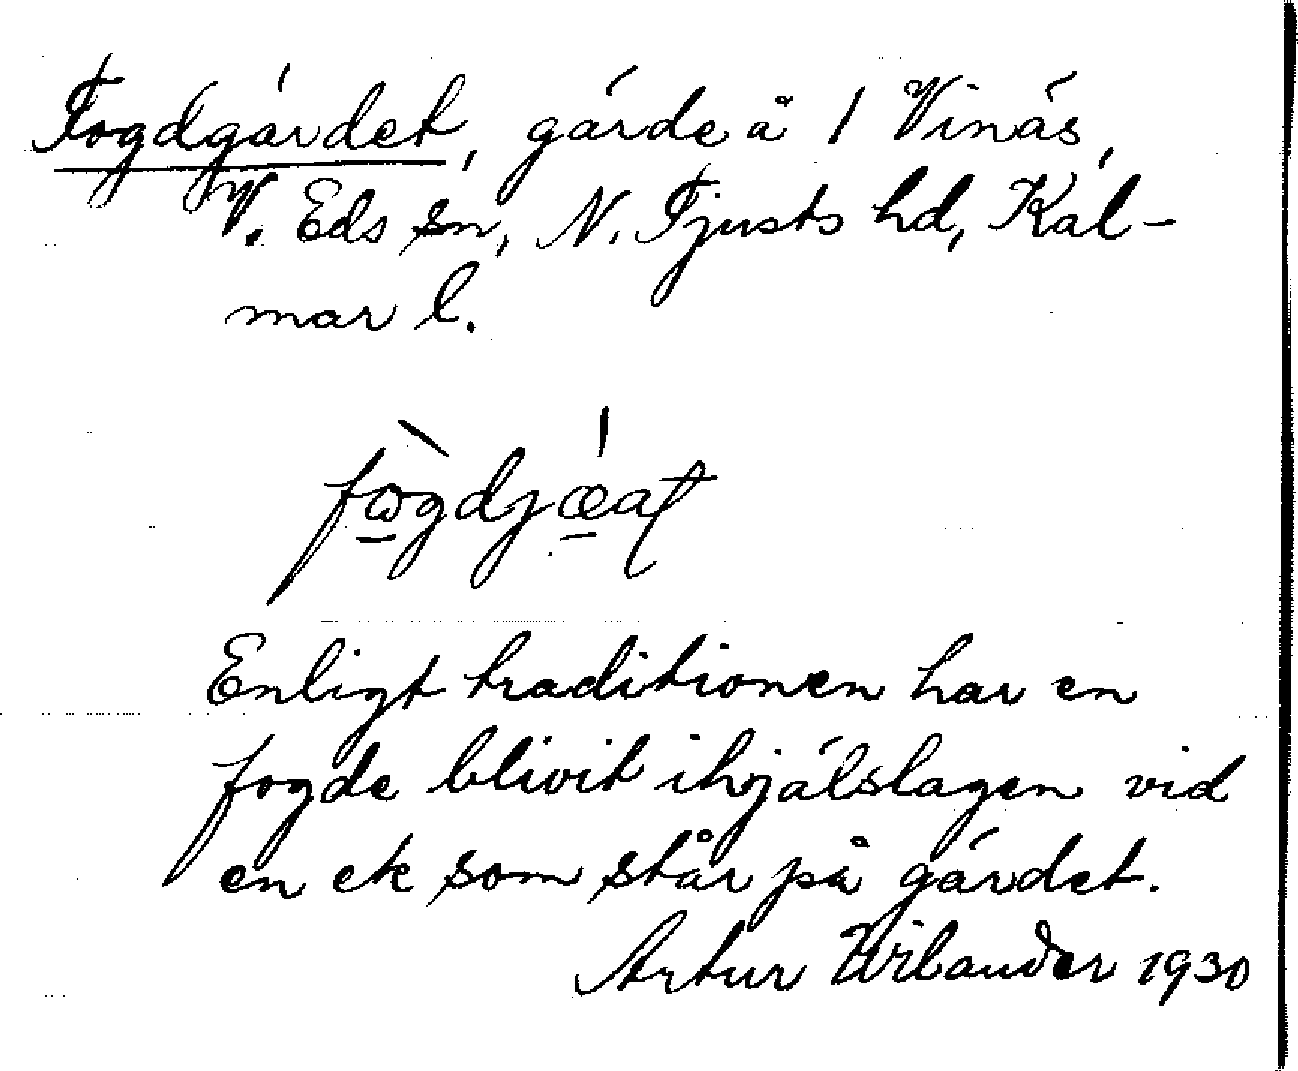 Fogdgärdet, gärde å 1 Vinäs,
V. Eds sn, N. Tjusts hd, Kal-
mar l.
fωgdjæat
Enligt traditionen har en
fogde blivit ihjälslagen vid
en ek som står på gärdet.
Artur Wilander 1930